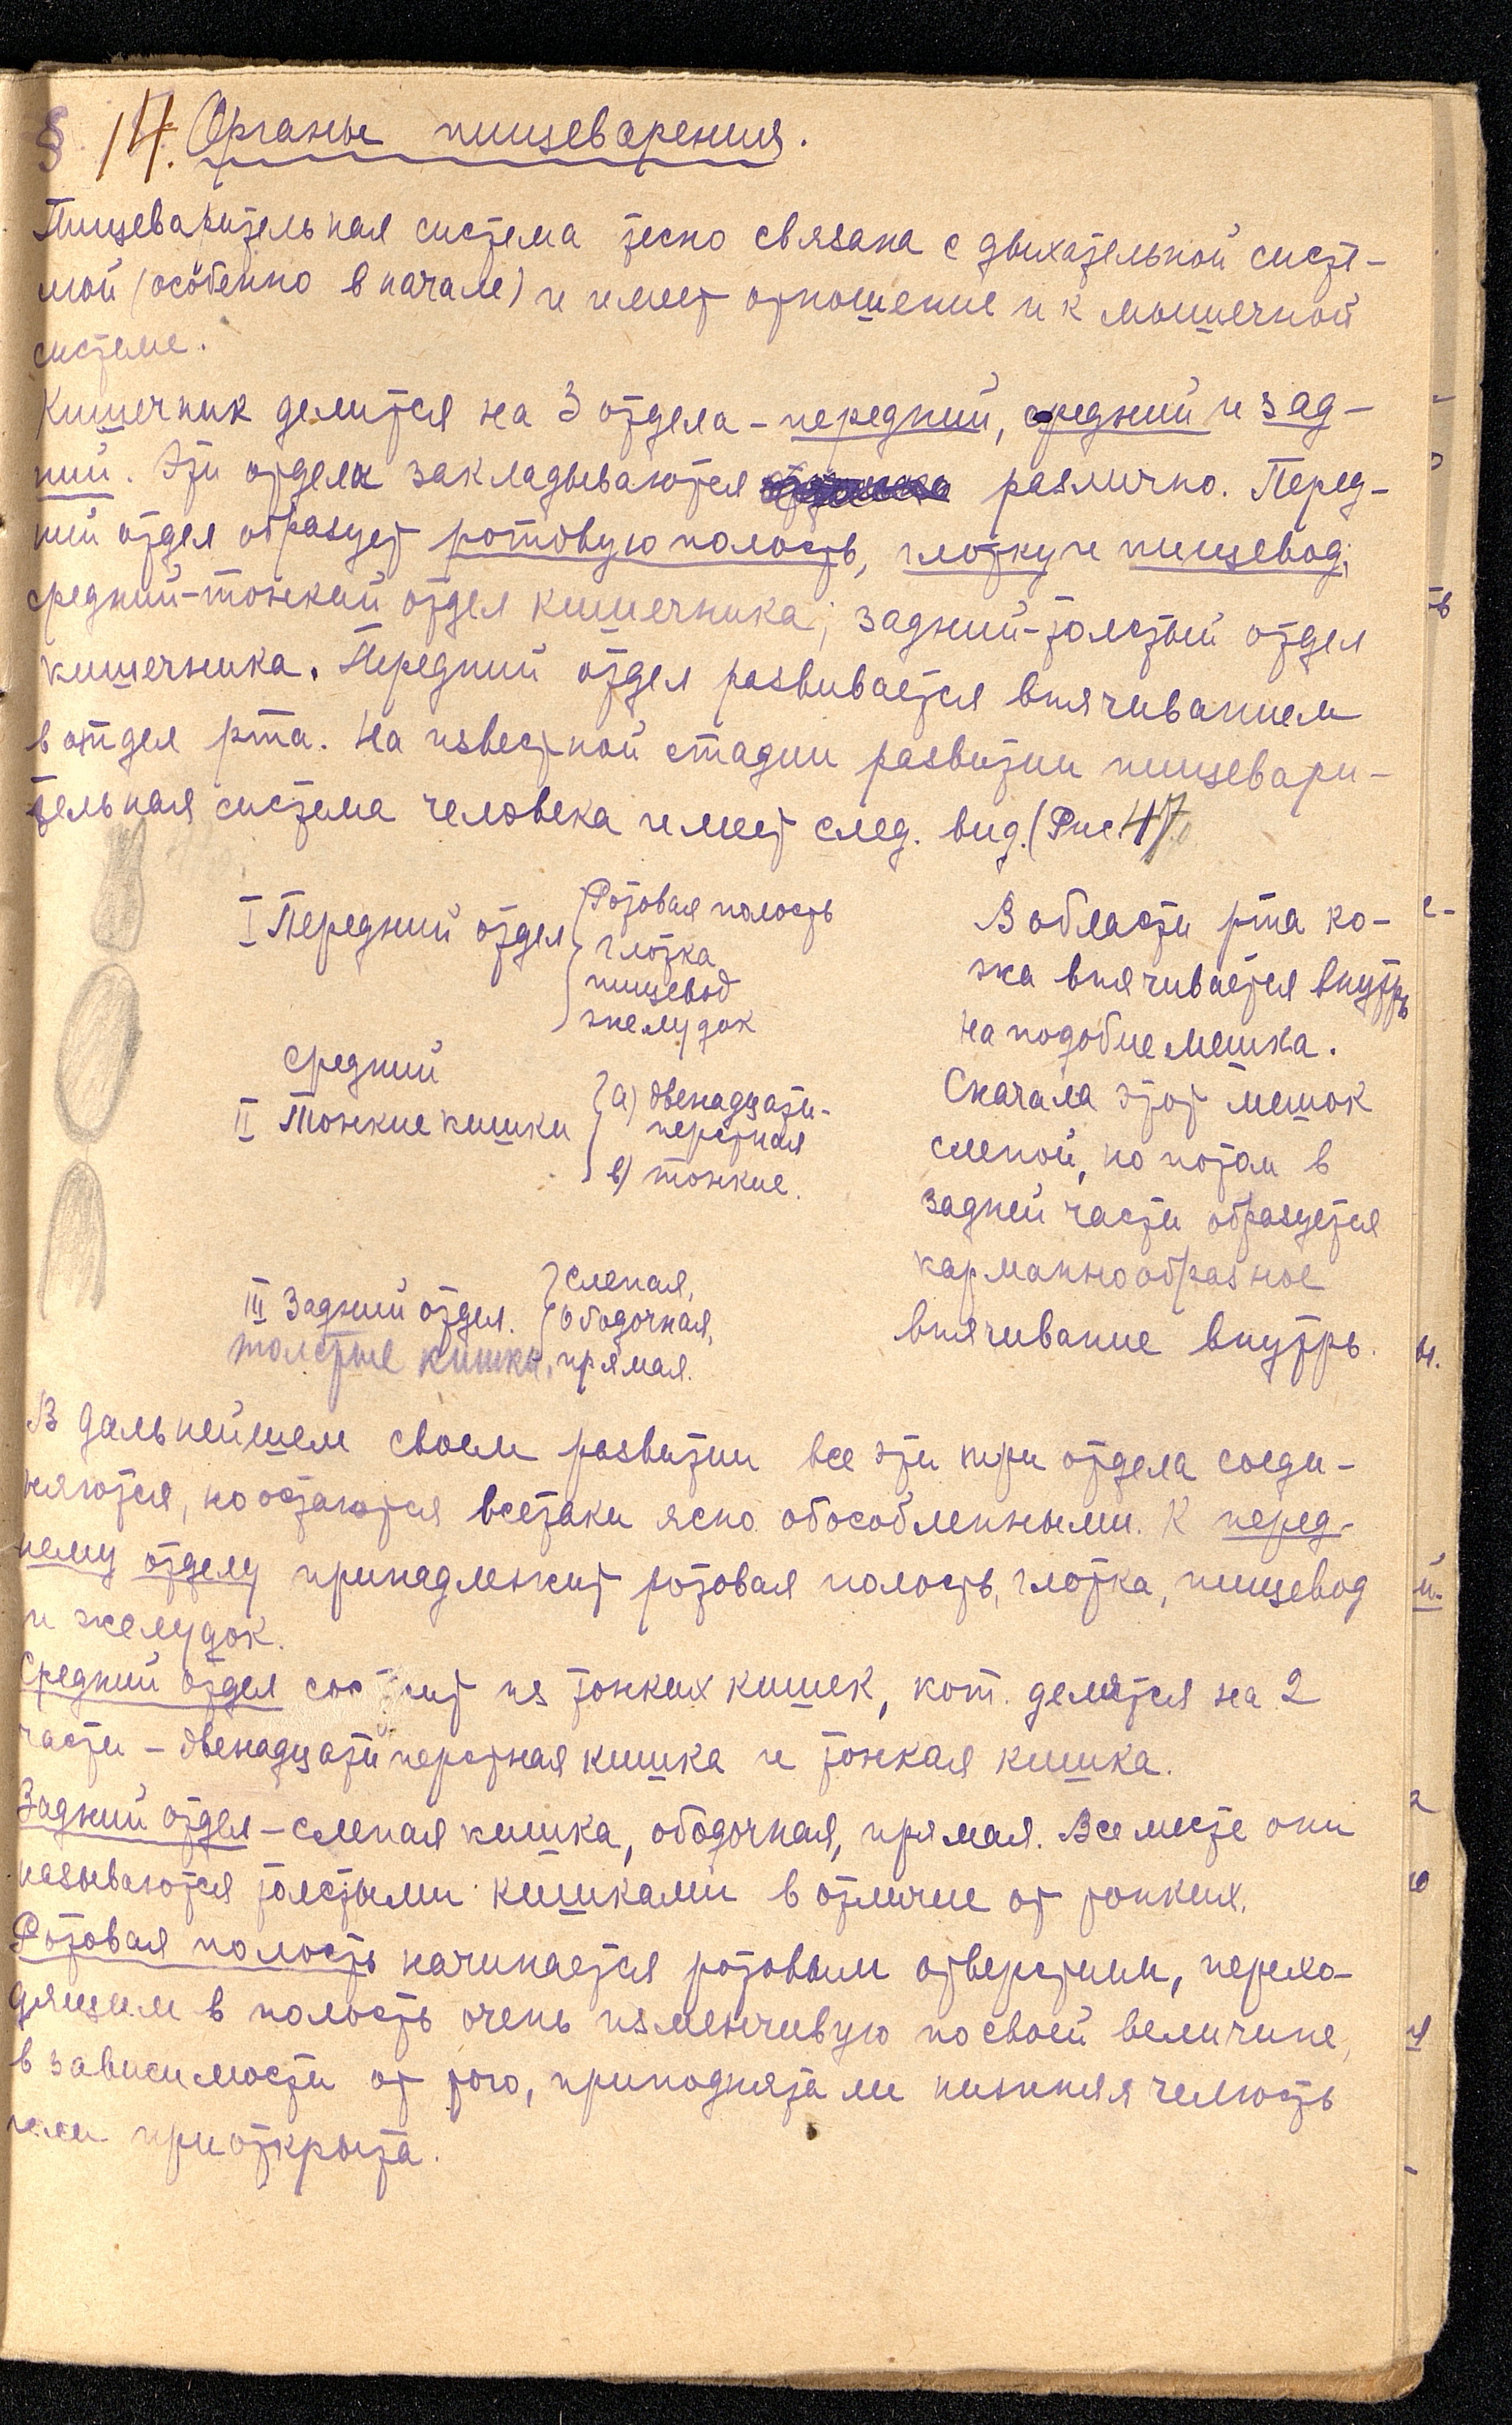 § 14. Органы пищеварения.
Пищеварительная система тесно связана с дыхательной систе-
мой (особенно в начале) и имеет отношение и к мышечной
системе.
Кишечник делится на 3 отдела - передний, средний и зад-
ний. Эти отделы закладываются различно. Перед-
ний отдел образует ротовую полость, глотку и пищевод;
средний - тонкий отдел кишечника; задний - толстый отдел
кишечника. Передний отдел развивается впячиванием
в отдел рта. На известной стадии развития пищевари-
тельная система человека имеет след. вид. (Рис. 47
I Передний отдел
Ротовая полость
глотка
пищевод
желудок
средний
II Тонкие кишки
а) двенадцати-
перстная
в) тонкие.
III Задний отдел.
толстые кишки.
слепая,
ободочная,
прямая.
В области рта ко-
жа впячивается внутрь
на подобие мешка.
Сначала этот мешок
слепой, но потом в
задней части образуется
карманнообразное
впячивание внутрь.
В дальнейшем своем развитии все эти три отдела соеди-
няются, но остаются всетаки ясно обособленными. К перед-
нему отделу принадлежит ротовая полость, глотка, пищевод
и желудок.
Средний отдел состоит из тонких кишек, кот. делятся на 2
части - двенадцатиперстная кишка и тонкая кишка.
Задний отдел - слепая кишка, ободочная, прямая. Все месте они
называются толстыми кишками в отличие от тонких.
Ротовая полость начинается ротовым отверстием, перехо-
дящим в полость очень изменчивую по своей величине,
в зависимости от того, приподнята ли нижняя челюсть
или приоткрыта.